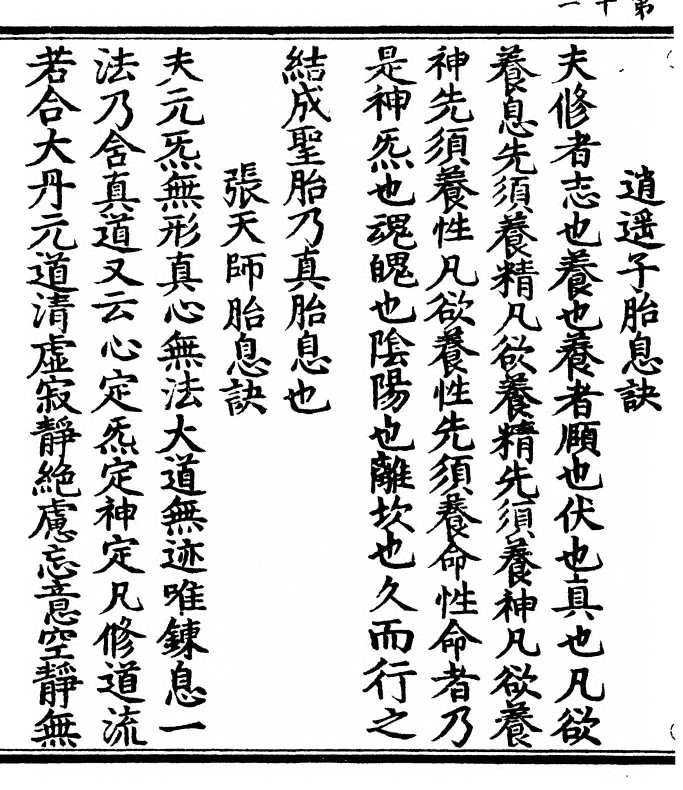 第十一
逍遥子胎息訣
夫修者志也養也養者頤也伏也真也凡欲
養息先須養精凡欲養精先須養神凡欲養
神先須養性凡欲養性先須養命性命者乃
是神炁也魂魄也陰陽也離坎也久而行之
結成聖胎乃真胎息也
張天師胎息訣
夫元炁無形真心無法大道無迹唯鍊息一
法乃含真道又云心定炁定神定凡修道流
若合大丹元道清虛寂靜絶慮忘意空靜無